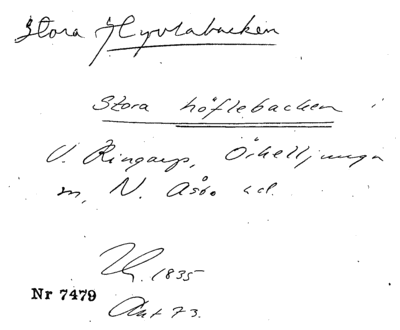 Stora Hyvlabacken
Stora höflebacken i
V. Ringarp, Örkelljunga
sn, N. Åsbo hd.
1835
Nr 7479
Akt 73.